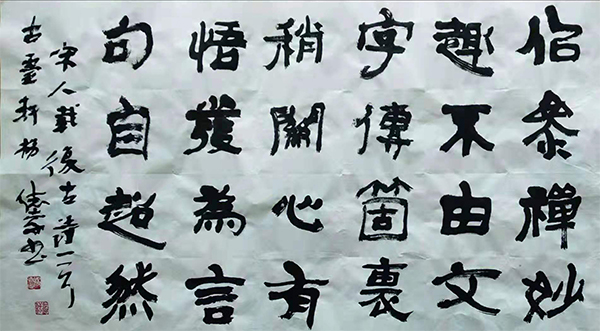 佀參禪妙
趣不由文
字傳箇裏
稍關心有
悟發為言
句自超然
宋人戴復古詩一首
古靈軒楊書